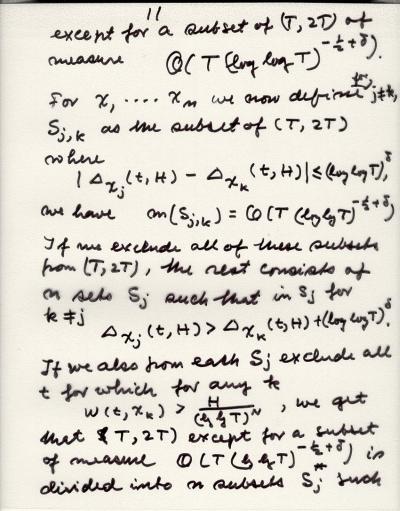 11
except for a subset of (T, 2T) of
measure O(T (log log T)^{-1/2+δ}).
For χ, .... χ_n we now define for j≠k,
S_{j,k} as the subset of (T, 2T)
where
|Δ_{χ_j}(t,H) - Δ_{χ_k}(t,H)| ≤ (log log T)^δ,
we have m(S_{j,k}) = O(T (log log T)^{-1/2+δ})
If we exclude all of these subsets
from (T, 2T), the rest consists of
n sets S_j such that in S_j for
k ≠ j
Δ_{χ_j}(t,H) > Δ_{χ_k}(t,H) + (log log T)^δ.
If we also from each S_j exclude all
t for which for any k
W(t, χ_k) > H/(lg lg T)^N, we get
that (T, 2T) except for a subset
of measure O(T (lg lg T)^{-1/2+δ}) is
divided into n subsets S_j^* such